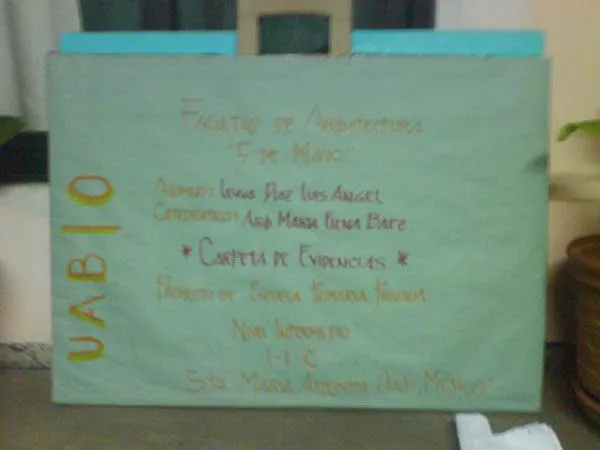 FACULTAD DE ARQUITECTURA
"5 DE MAYO"
ALUMNO: LUIS ANGEL
CATEDRATICO: ARQ. MARIA ELENA BAEZ
* CARPETA DE EVIDENCIAS *
PROYECTO DE ESCUELA PRIMARIA PRIVADA
NIVEL INTERMEDIO
I-I-C
STA MARIA
UABJO